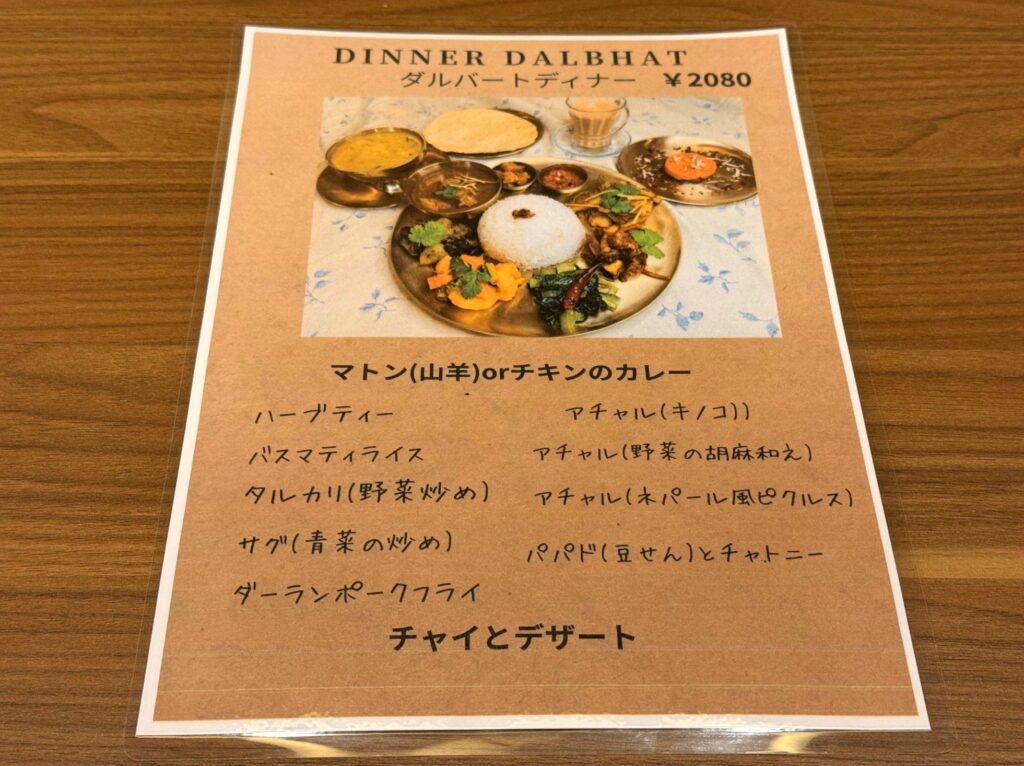 DINNER DALBHAT
ダルバートディナー ￥2080
マトン(山羊)orチキンのカレー
ハーブティー
バスマティライス
タルカリ(野菜炒め)
サグ(青菜の炒め)
ダーランポークフライ
アチャル(キノコ))
アチャル(野菜の胡麻和え)
アチャル(ネパール風ピクルス)
パパド(豆せん)とチャトニー
チャイとデザート